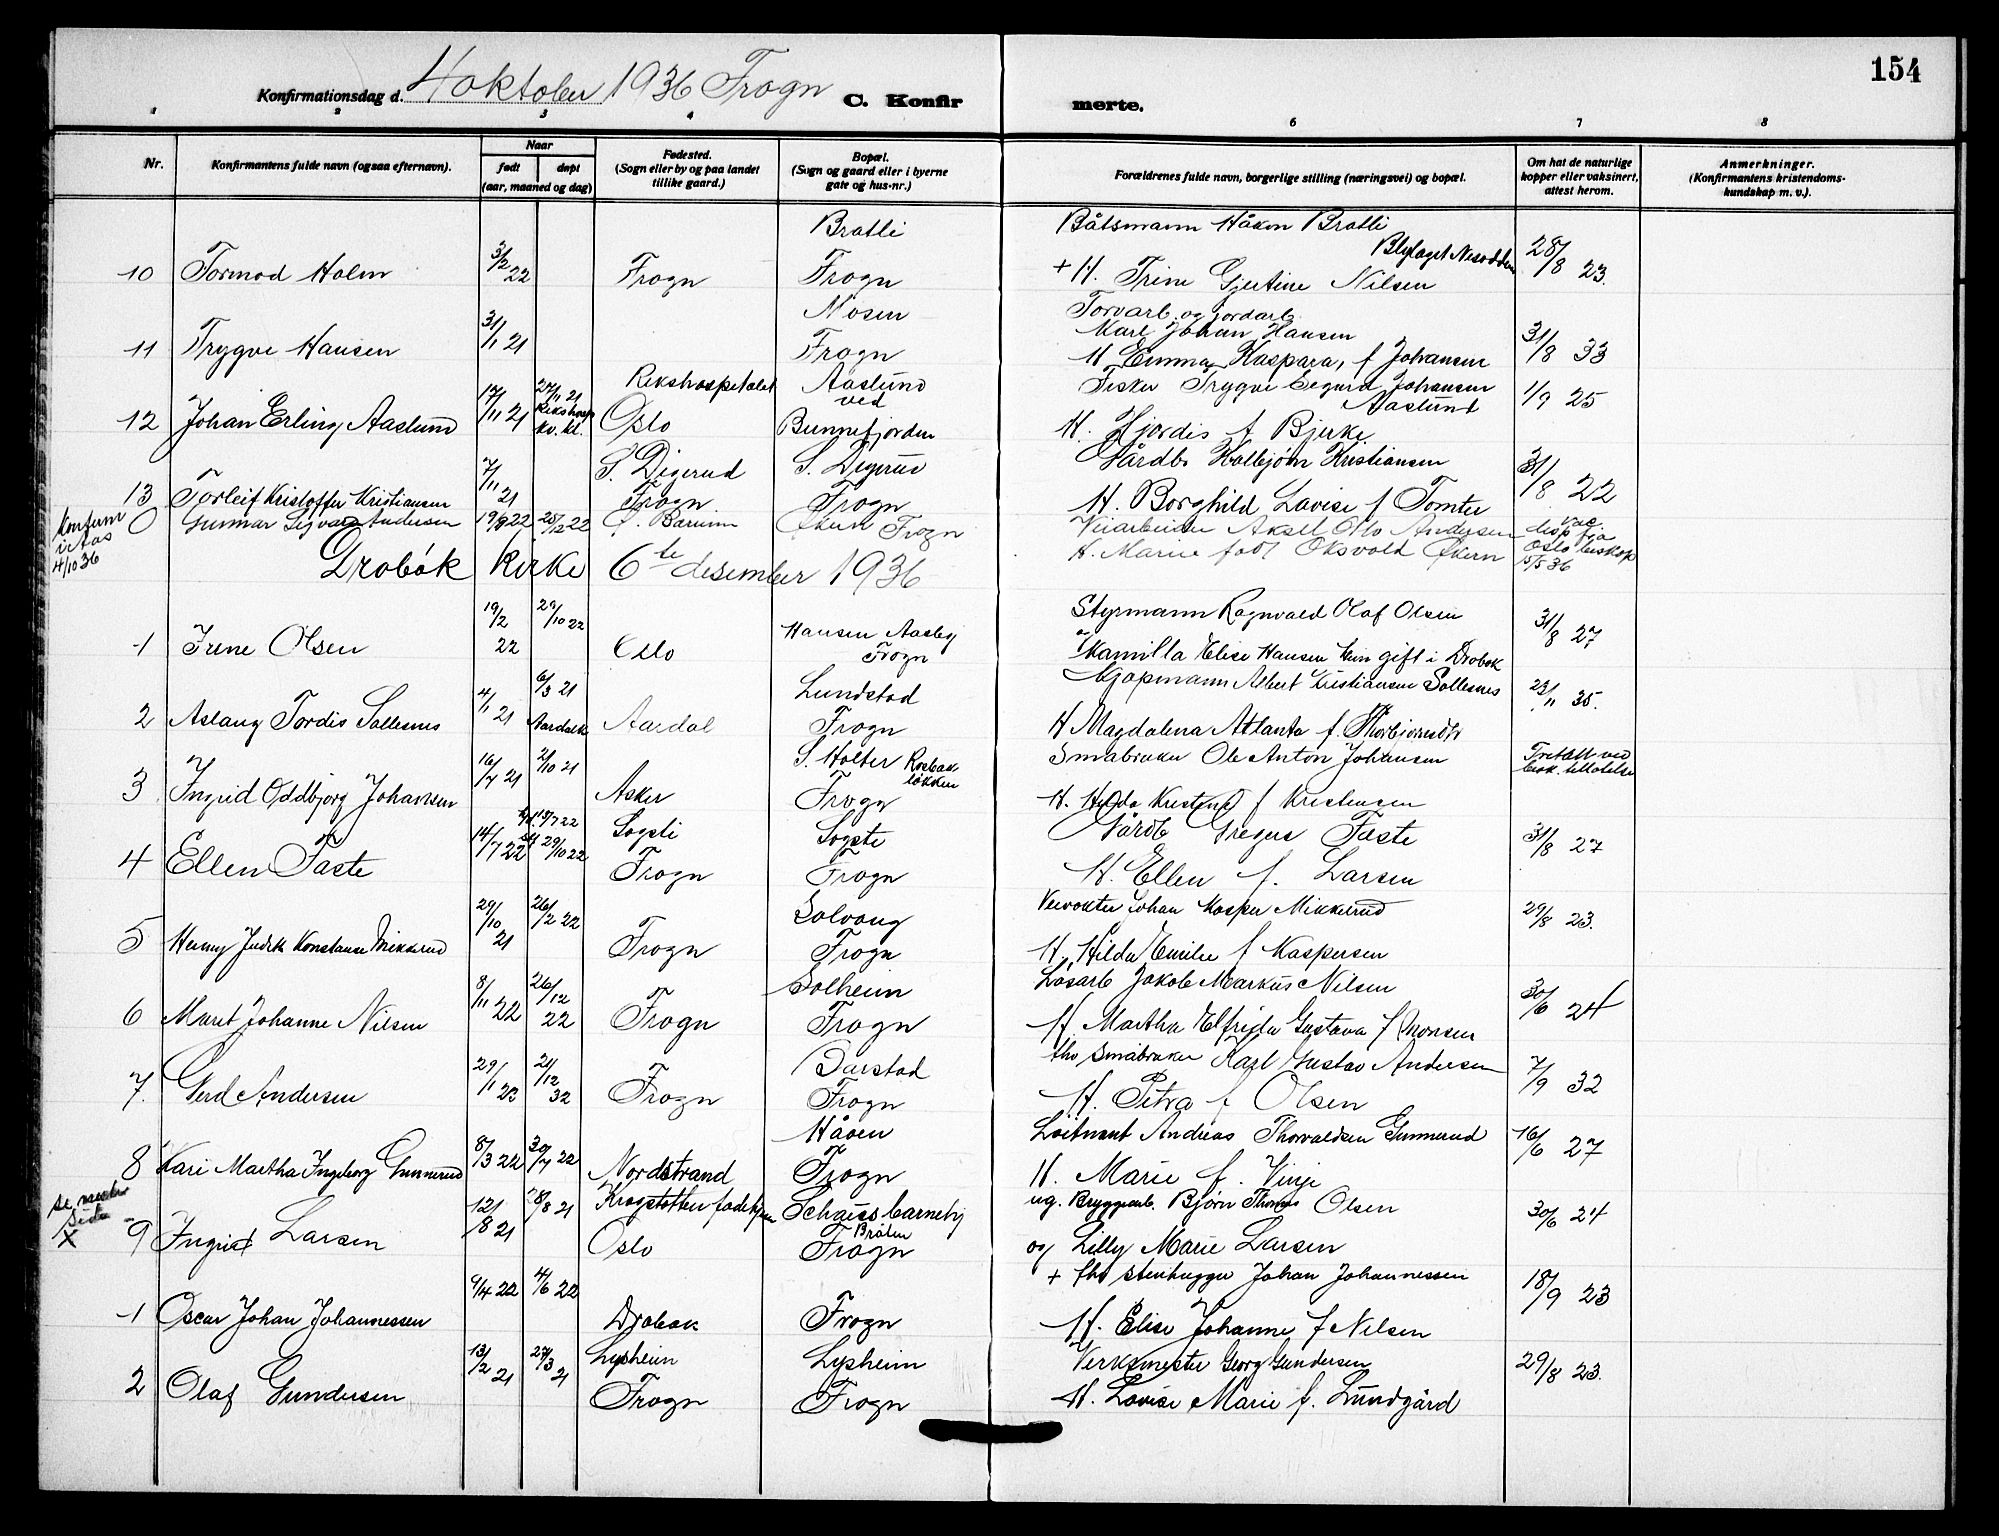 154
Konfirmationsdag d. 4 oktober 1936 Frogn C. Konfirmerte.
1 2 3 4 6 7 8
Nr. Konfirmantens fulde navn (ogsaa efternavn). Naar født døpt (aar, maaned og dag) Fødested. (Sogn eller by og paa landet tillike gaard.) Bopæl. (Sogn og gaard eller i byerne gate og hus-nr.) Forældrenes fulde navn, borgerlige stilling (næringsvei) og bopæl. Om hat de naturlige kopper eller vaksinert, attest herom. Anmerkninger. (Konfirmantens kristendomskundskap m. v.).
Bratli Båtsmann Håkon Bratli
Blylaget Nesodden
10 Tormod Holm 3/2 22 Frogn Frogn + H. Trine Gjertine Nilsen 28/8 23.
Mosen Torvarb. og jordarb.
Karl Johan Hansen
11 Trygve Hansen 31/1 21 Frogn H Emma Kaspara, f Johansen 31/8 33
Rikshospitalet Aaslund Fisker Trygve Sigurd Johansen
ved Aaslund
12 Johan Erling Aaslund 17/11 21 27/11 21 Rikshosp kv. kl. Oslo Bunnefjorden H. Hjordis f Bjerke 1/9 25
S. Digerud S. Digerud Gårdbr Halbjørn Kristiansen
13 Torleif Kristoffer Kristiansen 7/11 21 Frogn Frogn H. Borghild Lovise f Tomter 31/8 22
konfirm
4/10 36
0 Gunnar Sigvard Andersen 19/8 22 25/2 22 Ø. Bærum Økern Frogn Veiarbeider Aksel Otto Andersen
H. Marie født Oksvold Økern
vac. disp fra Oslo biskop 15/5 36
Drøbak kirke 6te desember 1936
Styrmann Ragnvald Olaf Olsen
1 Irene Olsen 19/2 22 29/10 22 Oslo Hansen Aasby Frogn
og Kamilla Elise Hansen Hun gift i Drøbak 31/8 27
Lundstad Kjøpmann Albert Kristiansen Sollesnes
2 Aslaug Tordis Sollesnes 4/1 21 6/3 21 Aardal k Aardal Frogn H Magdalena Atlanta f. Thorbjørnsdtr 23/11 35.
S. Holter Rosbakløkken Småbruker Ole Anton Johansen
3 Ingrid Oddbjørg Johansen 16/7 21 2/10 21 Asker Frogn H. Hilda Kristine f Kristensen
Foretatt ved bisk. tillatelse
Sogsti Sogste Gårdb Gregus Faste
4 Ellen Faste 14/7 22 29/10 22 Frogn Frogn H. Ellen f. Larsen 31/8 27
Solvang Veivokter Johan Kasper Mikkelrud
5 Henny Judith Konstanse Mikkelrud 29/10 21 26/2 22 Frogn Frogn H. Hilda Emilie f Kaspersen 29/8 23.
Solheim Løsarb Jakob Markus Nilsen
6 Maret Johanne Nilsen 8/11 22 26/12 22 Frogn Frogn H. Martha Elfrida Gustava f Aronsen 30/6 24
Darstad fhv småbruker Karl Gustav Andersen
7. Gerd Andersen 29/1 23 21/12 32 Frogn Frogn H. Petra f Olsen 7/9 32
Håven Løitnant Andreas Thorvaldsen Gunnerud
8 Kari Martha Ingeborg Gunnerud 8/3 22 30/7 22 Nordstrand Frogn H. Marie f. Vinje 16/6 27
se neste side X
Krogstøtten fødehjem Schauss barnehj Bråten ug. Bryggearb. Bjørn Thomas Olsen
9 Ingrid Larsen 12/8 21 28/8 21 Oslo Frogn og Lilly Marie Larsen 30/6 24
+ fhv stenhugger Johan Johannessen
1 Oscar Johan Johannessen 9/4 22 4/6 22 Drøbak Frogn H. Elise Johanne f Nilsen 18/9 23
Lysheim Lysheim Verksmester Georg Gundersen
2 Olaf Gundersen 13/2 21 27/3 21 Frogn Frogn H. Lovise Marie f. Lundgård 29/8 23.